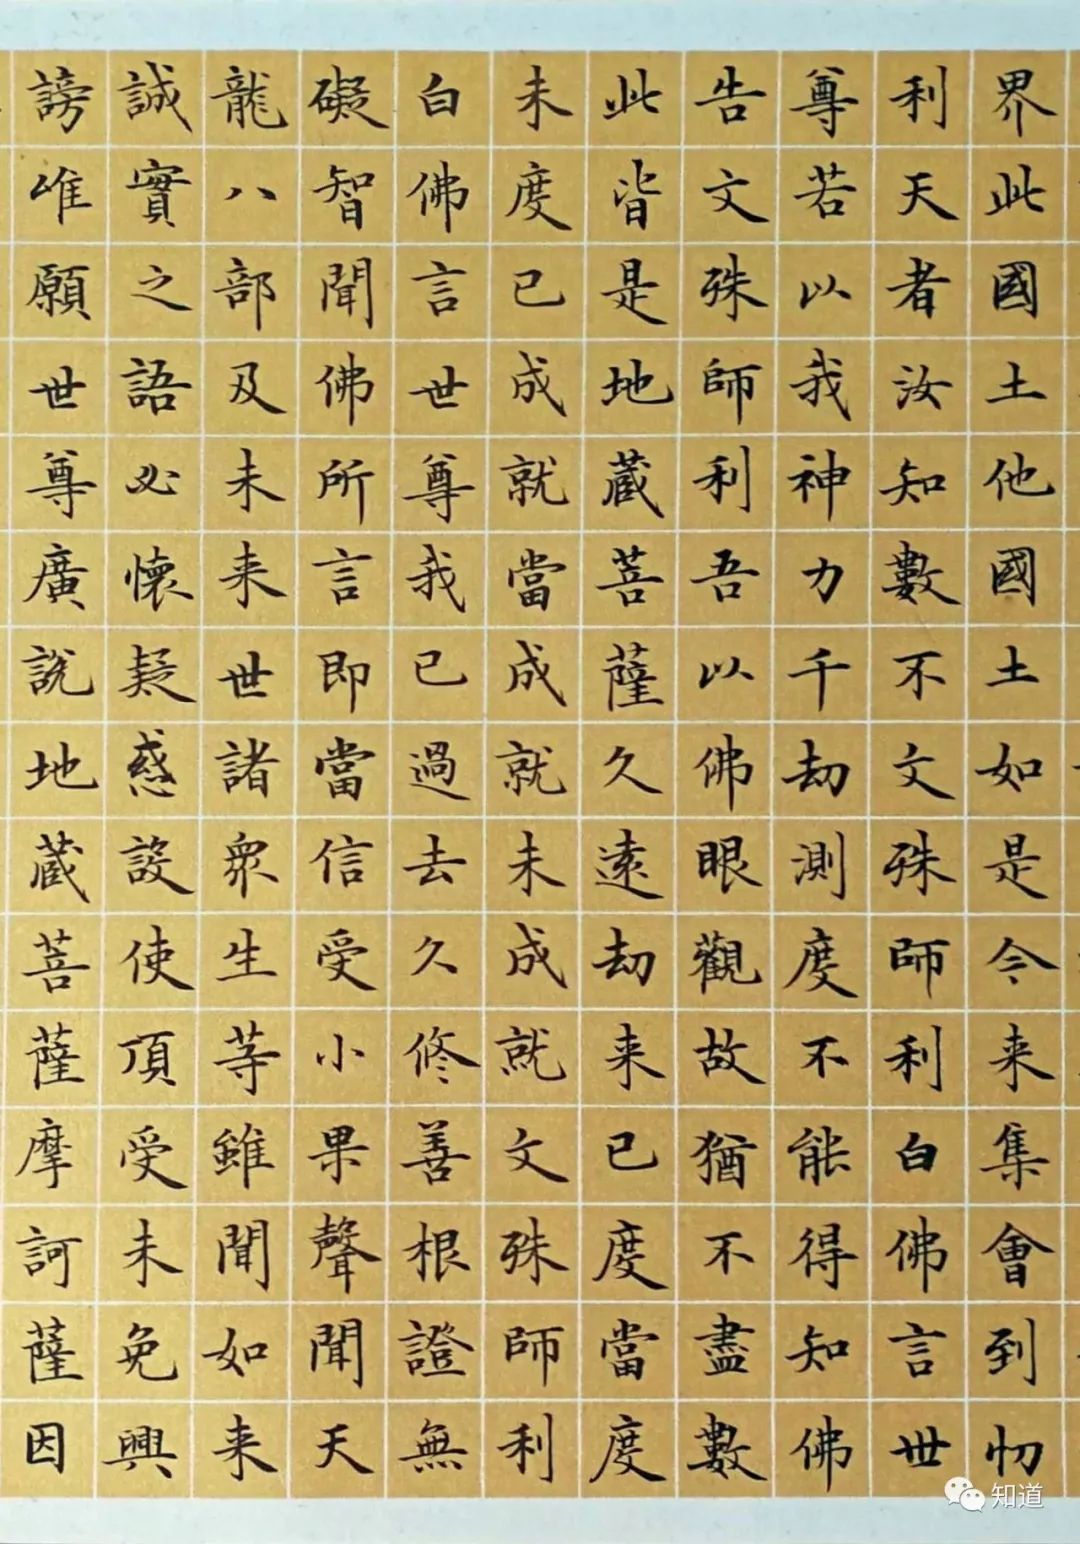 界此國土他國土如是今来集會到忉
利天者汝知數不文殊師利白佛言世
尊若以我神力千劫測度不能得知佛
告文殊師利吾以佛眼觀故猶不盡數
此皆是地蔵菩薩久遠劫来已度當度
未度已成就當成就未成就文殊師利
白佛言世尊我已過去久修善根證無
礙智聞佛所言即當信受小果聲聞天
龍八部及未来世諸衆生等雖聞如来
誠實之語必懷疑惑設使頂受未免興
謗唯願世尊廣説地蔵菩薩摩訶薩因
知道